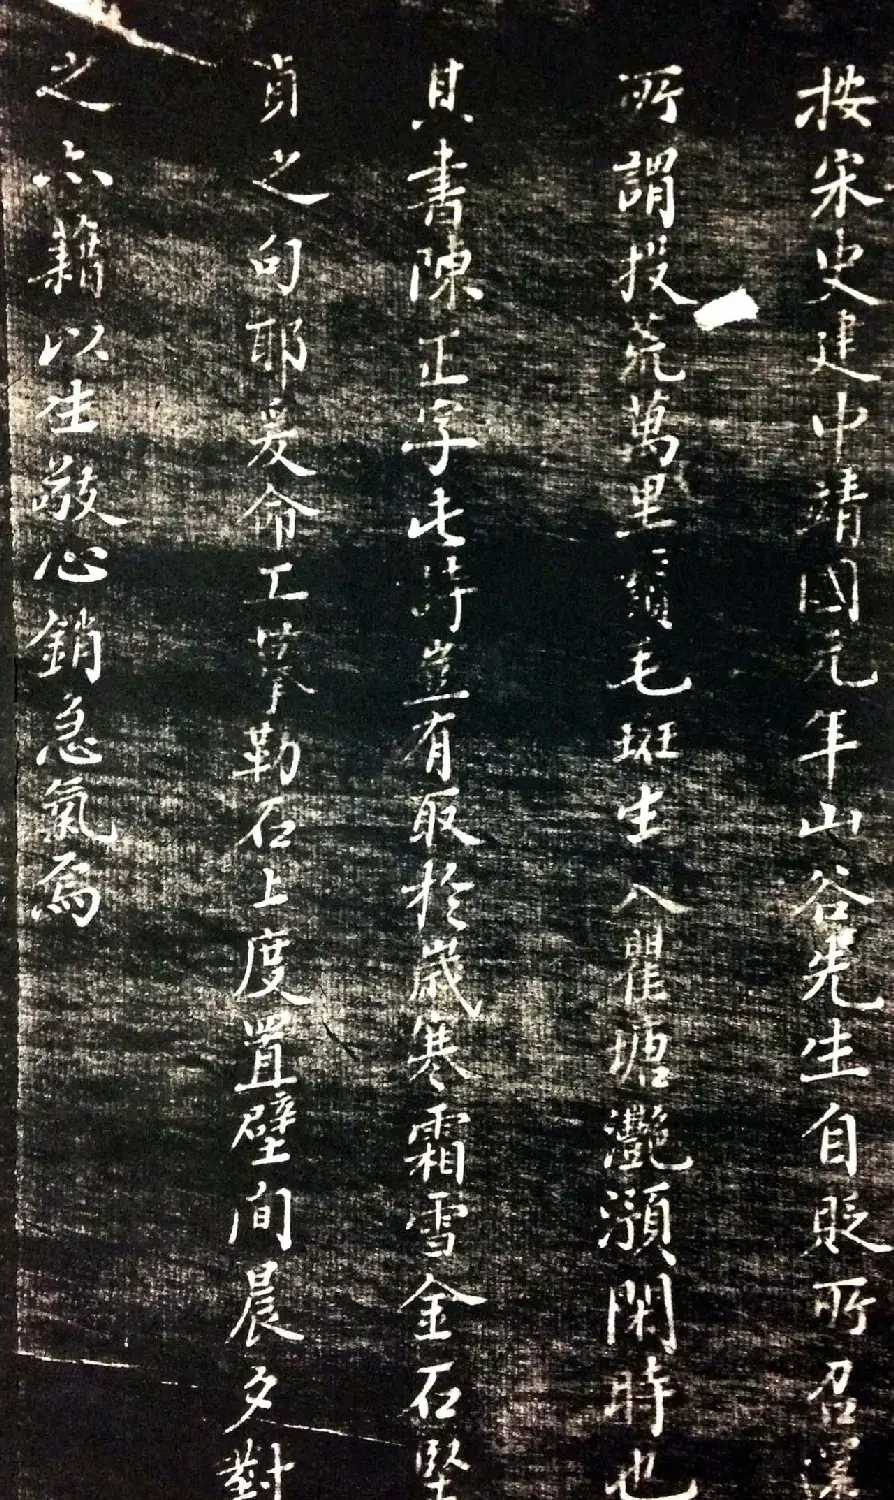 按宋史建中靖國元年山谷先生自貶所召還
所謂投荒萬里鬢毛斑生入瞿塘灔澦關時也
其書陳正字此詩豈有取於歲寒霜雪金石堅
貞之句耶爰命工摹勒石上度置壁間晨夕對
之亦藉以生敬心銷急氣焉